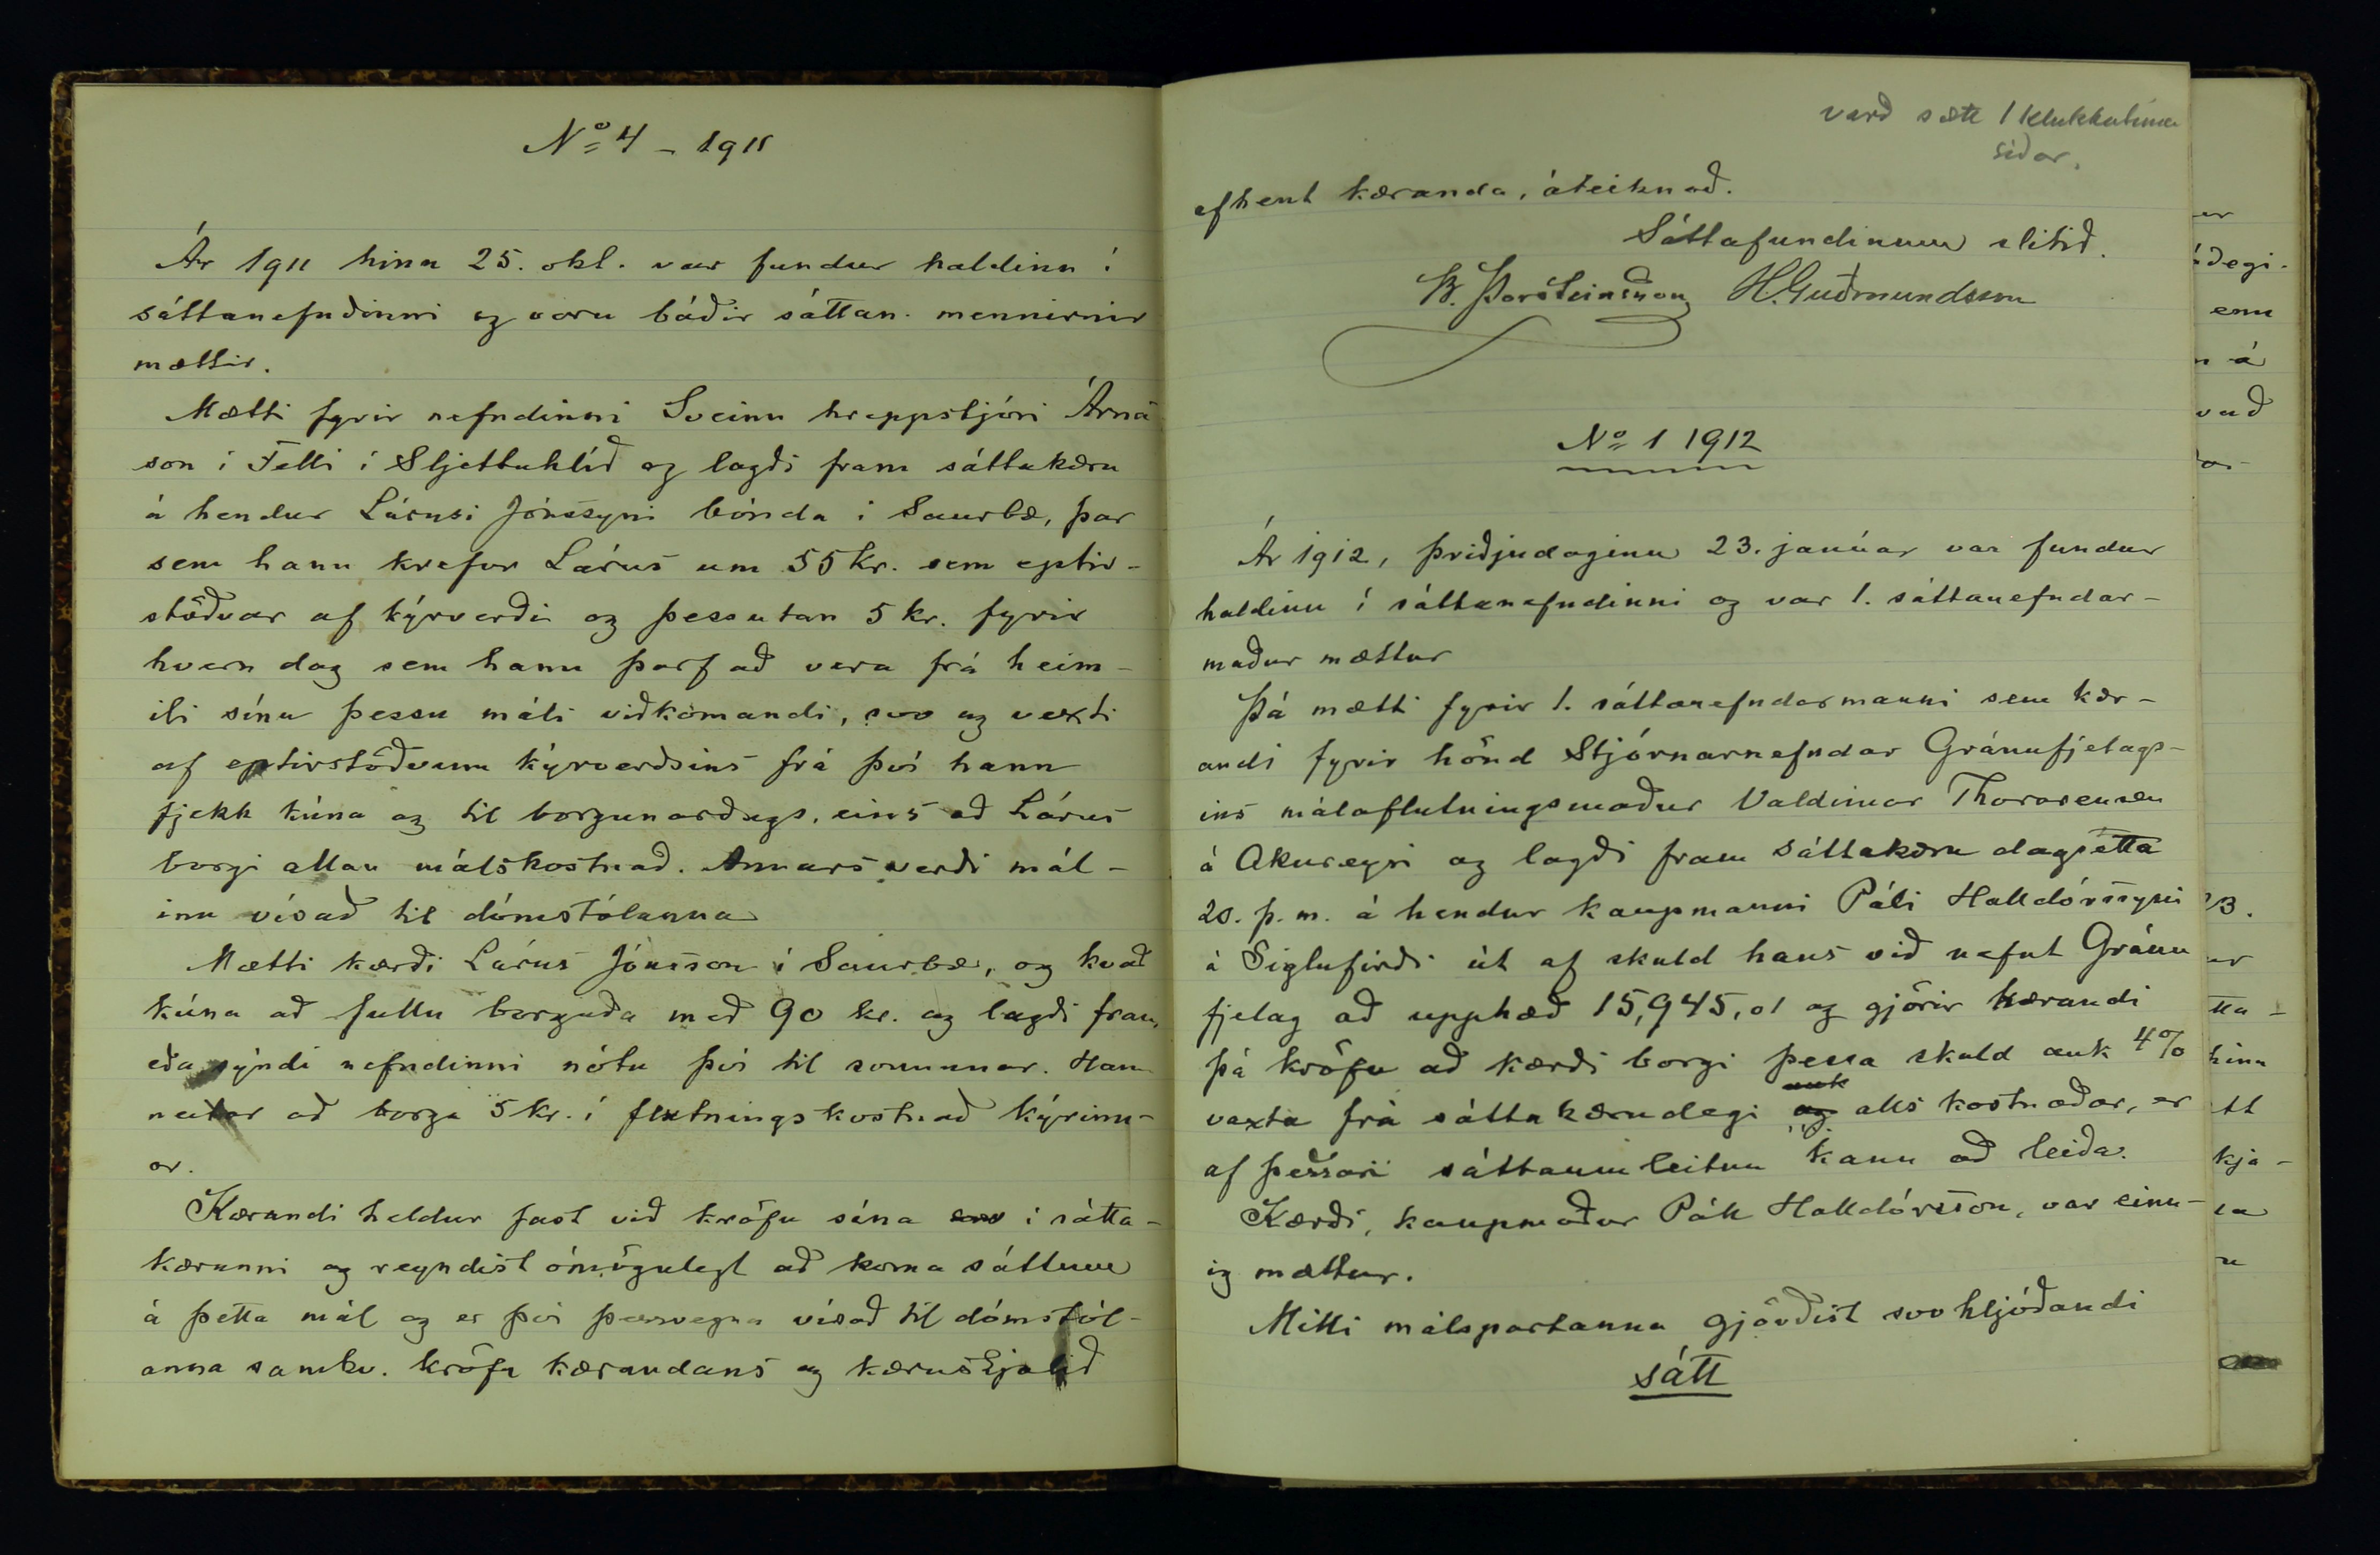 No 4 - 1911
Ár 1911 hinn 25. okt. var fundur haldinn í
sáttanefndinni og voru báðir sáttan. mennirnir
mættir.
Mætti fyrir nefndinni Sveinn hreppstjóri Árna
son í Felli í Sljettuhlíð og lagði fram sáttakæru
á hendur Lárusi Jónssyni bónda í Saurbæ, þar
sem hann krefur Lárus um 55 kr. sem eptir-
stöðvar af kýrverði og þessutan 5 kr. fyrir
hvern dag sem hann þarf að vera frá heim-
ili sínu þessu máli viðkomandi, svo og vexti
af eptirstöðvum kýrverðsins frá því hann
fjekk kúna og til borgunardags, eins að Lárus
borgi allan málskostnað. Annars verði mál-
inu vísað til dómstólanna
Mætti kærði Lárus Jónsson í Saurbæ, og kvað
kúna að fullu borgaða með 90 kr. og lagði fram,
eða sýndi nefndinni nótu því til sönnunar. Hann
neitar að borga 5 kr. í flutningskostnað kýrinn-
ar.
Kærandi heldur fast við kröfu sína í sátta-
kærunni og reyndist ómögulegt að koma sáttum
á þetta mál og er því þessvegna vísað til dómstól-
anna samkv. kröfu kærandans og kæruskjalið
varð sætt 1 klukkutíma
síðar.
afhent kæranda, áteiknað.
Sáttafundinum slitið.
B. Þorsteinsson H. Guðmundsson
No 1 1912
Ár 1912, þriðjudaginn 23. janúar var fundur
haldinn í sáttanefndinni og var 1. sáttanefndar-
maður mættur
Þá mætti fyrir 1. sáttanefndarmanni sem kær-
andi fyrir hönd Stjórnarnefndar Gránufjelags-
ins málaflutningsmaður Valdimar Thorarensen
á Akureyri og lagði fram sáttakæru dagsetta
20. þ. m. á hendur kaupmanni Páli Halldórssyni
á Siglufirði út af skuld hans við nefnt Gránu
fjelag að upphæð 15,945,01 og gjörir kærandi
þá kröfu að kærði borgi þessa skuld auk 4%
vaxta frá sáttakærudegi og alls kostnaðar, er
af þessari sáttaumleitun kann að leiða.
Kærði, kaupmaður Páll Halldórsson, var einn-
ig mættur.
Milli málspartanna gjörðist svo hljóðandi
sátt